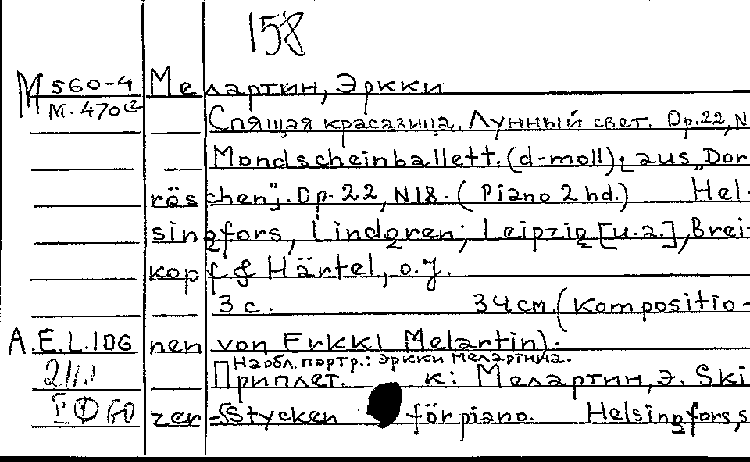 158
M 560-4 Мелартин, Эркки
М. 470
Спящая красавица. Лунный свет. Op.22, N
Mondscheinballett. (d-moll); aus „Dorn
röschen". Op. 22, N18. (Piano 2 hd.) Hel-
singfors, Lindgren; Leipzig [u.a.], Breit
kopf & Härtel, o.J.
3 с. 34 см. (Kompositio-
A.E.L.106 nen von Erkki Melartin).
На обл. портр.: Эркки Мелартина.
Приплет. к: Мелартин, Э. Ski
zer-Stycken för piano. Helsingfors, s